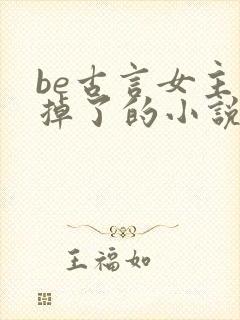 be古言女主
掉了的小説
王福如